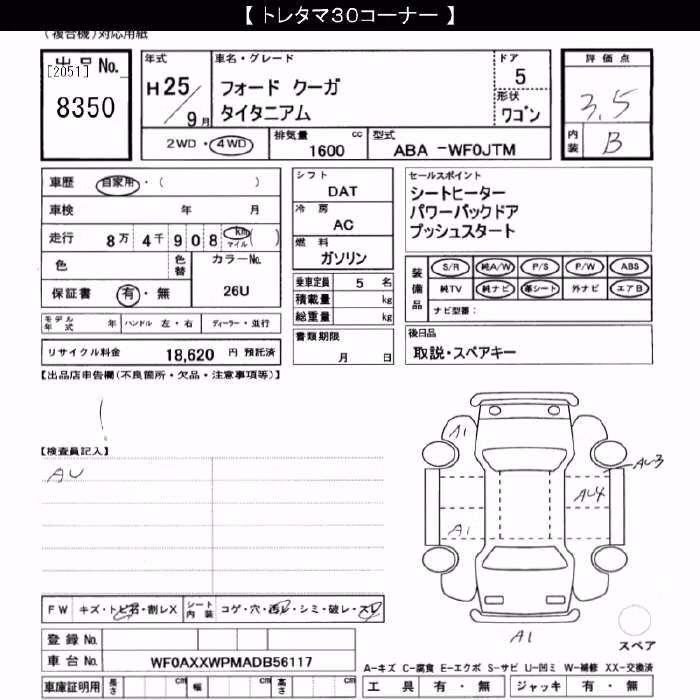 【 トレタマ30コーナー 】
(複合機)対応用紙
出品No.
[2051]
8350
年式
H25/9月
車名・グレード
フォード クーガ
タイタニアム
ドア
5
形状
ワゴン
評価点
3.5
内装
B
2WD・4WD
排気量
1600 cc
型式
ABA -WF0JTM
車歴 自家用・( )
車検 年 月
走行 8万 4千 908 km マイル ( )
色
色替
カラーNo.
26U
保証書 有・無
シフト
DAT
冷房
AC
燃料
ガソリン
セールスポイント
シートヒーター
パワーバックドア
プッシュスタート
乗車定員 5 名
積載量 kg
総重量 kg
装備品
S/R 純A/W P/S P/W ABS
純TV 純ナビ 革シート 外ナビ エアB
ナビ型番:
モデル年式 年 ハンドル 左・右 ディーラー・並行
リサイクル料金 18,620 円 預託済
書類期限
月 日
後日品
取説・スペアキー
【出品店申告欄(不良箇所・欠品・注意事項等)】
【検査員記入】
AU
A1
AU3
AU4
A1
A1
FW キズ・トビ石・割レX シート内装 コゲ・穴・汚レ・シミ・破レ・スレ
登録No.
車台No. WF0AXXWPMADB56117
スペア
A-キズ C-腐食 E-エクボ S-サビ U-凹ミ W-補修 XX-交換済
車庫証明用 長さ cm 幅 cm 高さ cm
工具 有・無 ジャッキ 有・無